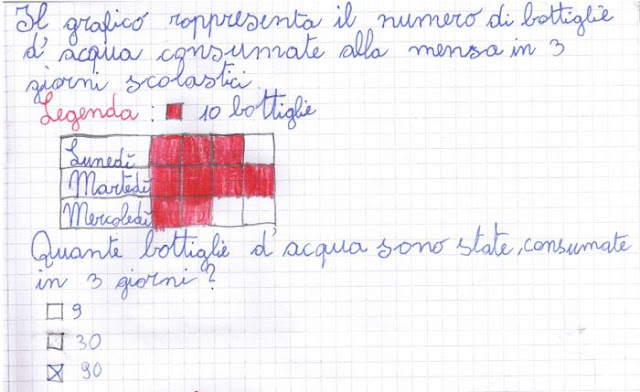 Il grafico rappresenta il numero di bottiglie
d'acqua consumate alla mensa in 3
giorni scolastici
Legenda : 10 bottiglie
Lunedì
Martedì
Mercoledì
Quante bottiglie d'acqua sono state consumate
in 3 giorni?
9
30
90